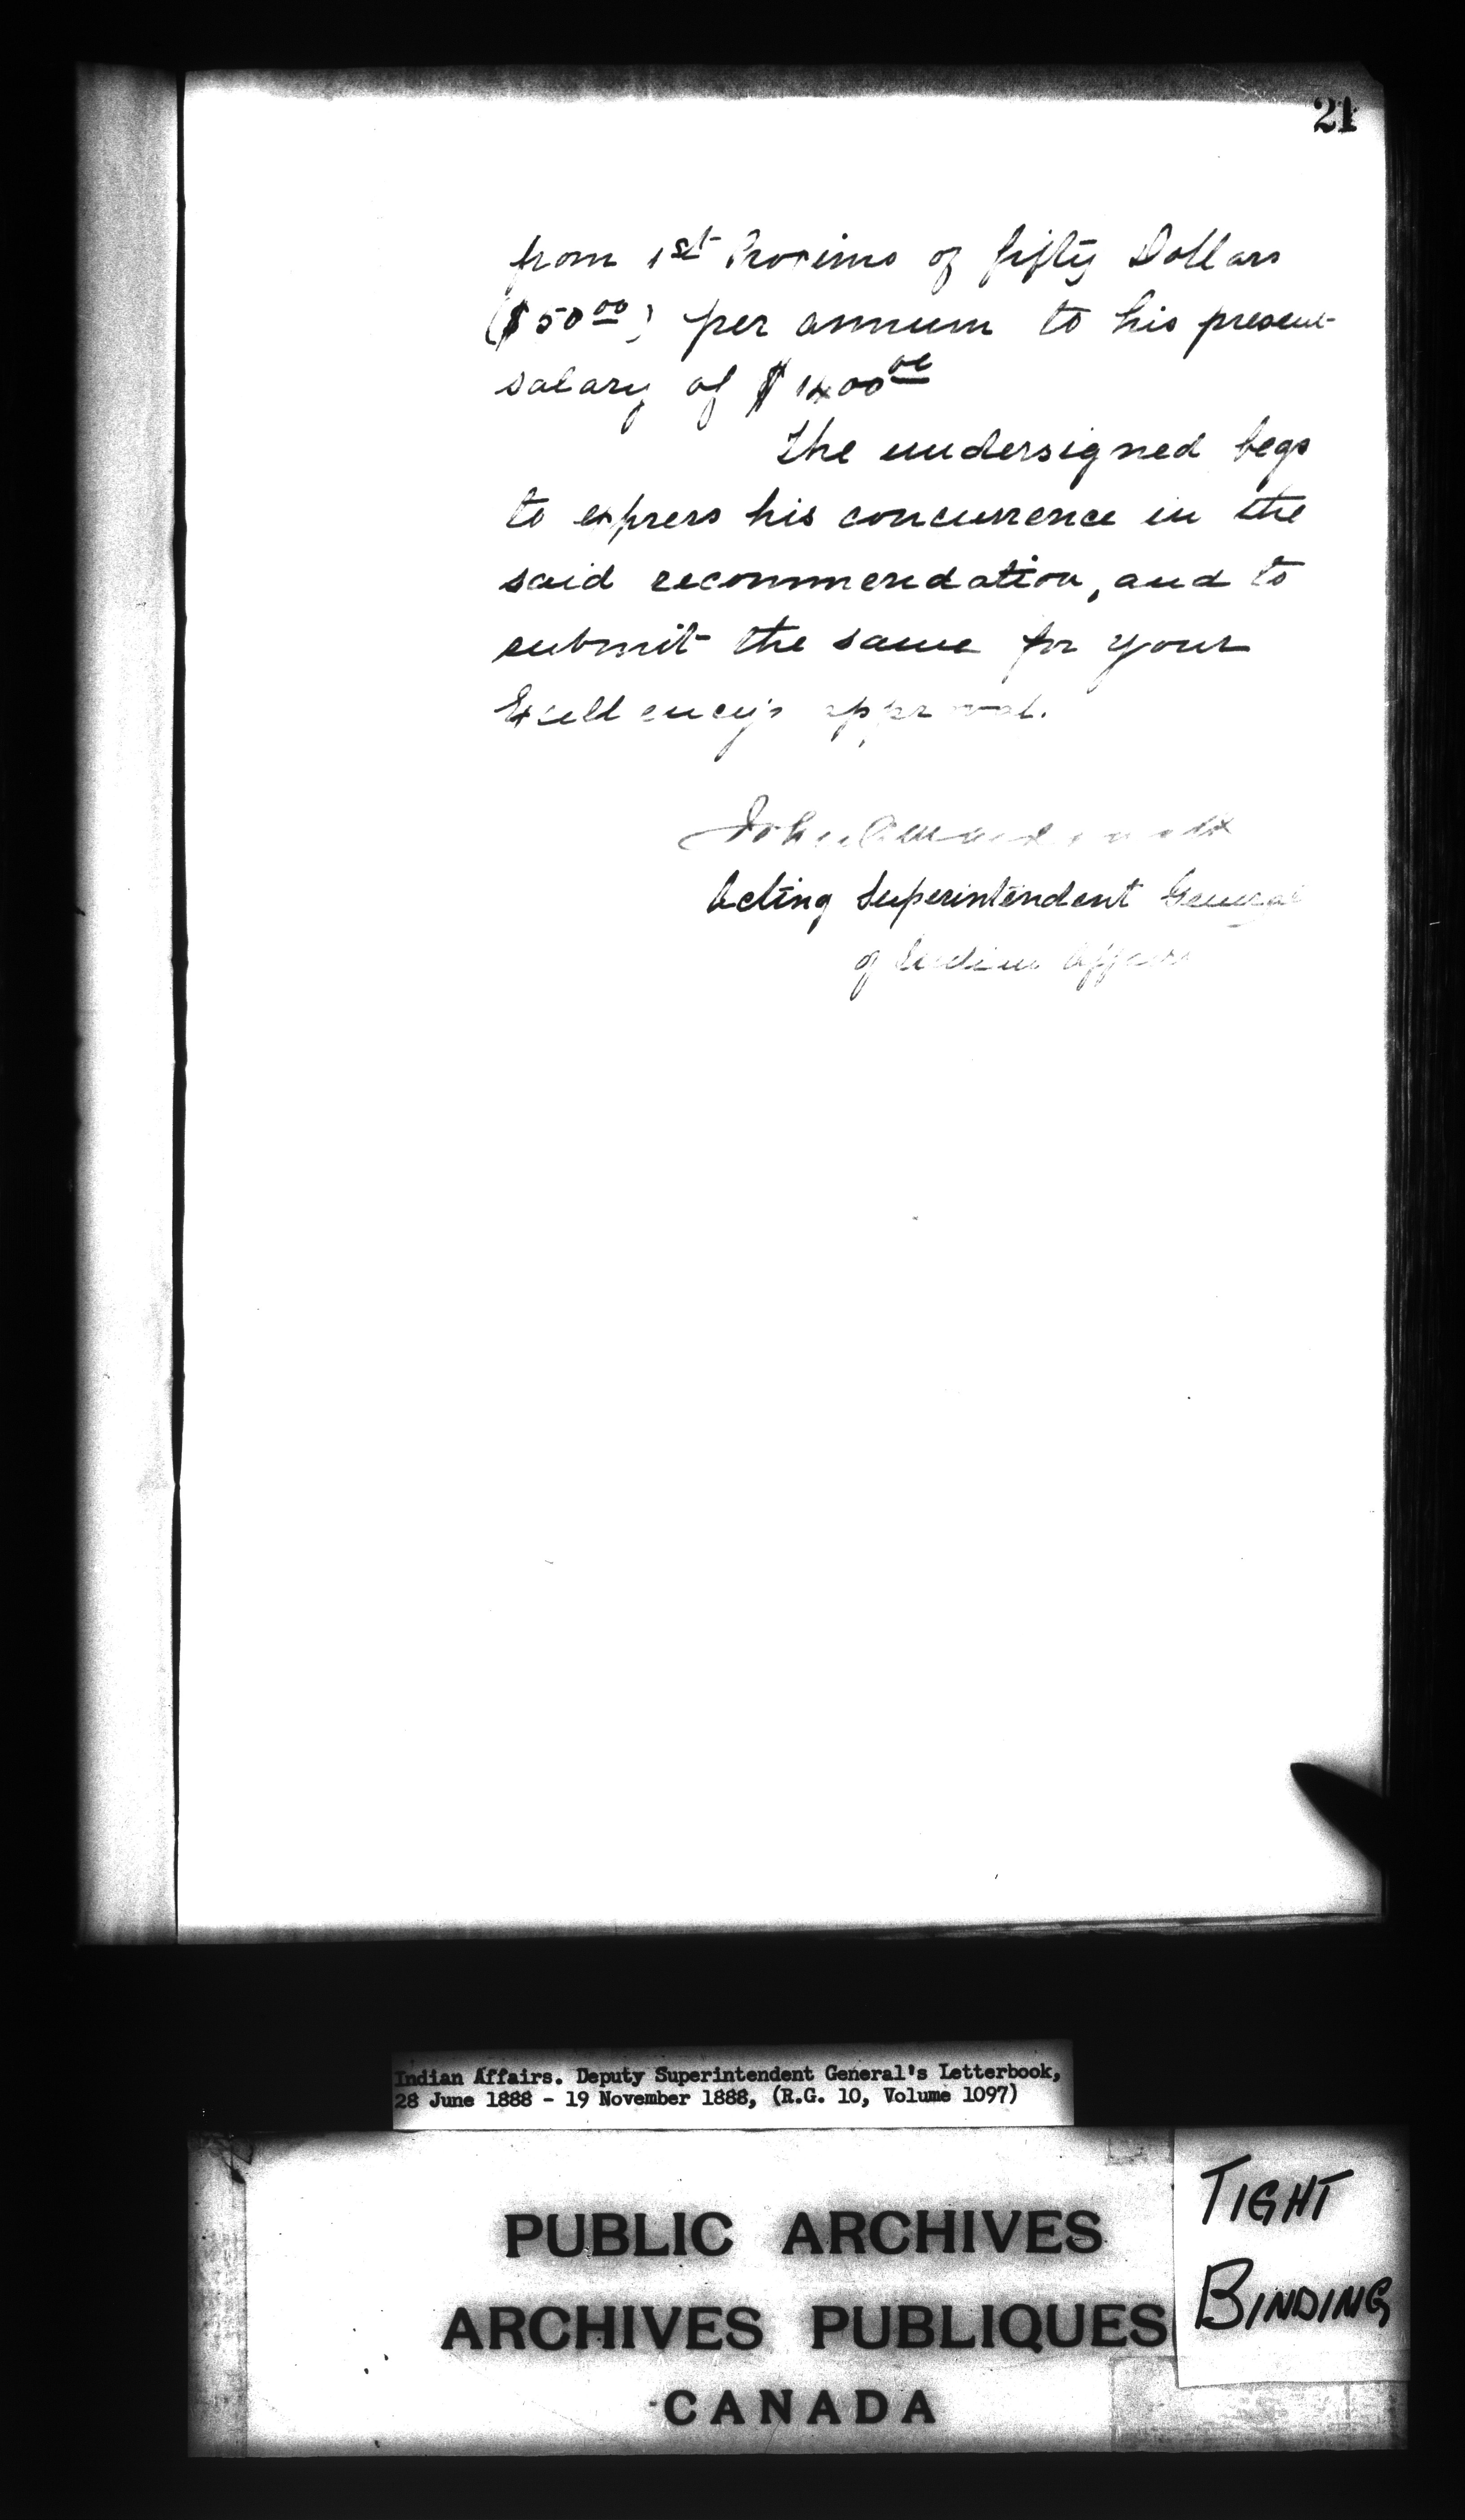 21
from 1st Proximo of fifty Dollars
($50.00) per annum to his present
salary of $1400.00
The undersigned begs
to express his concurrence in the
said recommendation, and to
submit the same for your
Excellency's approval.
John A Macdonald
Acting Superintendent General
of Indian Affairs
Indian Affairs. Deputy Superintendent General's Letterbook,
28 June 1888 - 19 November 1888, (R.G. 10, Volume 1097)
PUBLIC ARCHIVES
ARCHIVES PUBLIQUES
CANADA
TIGHT
BINDING